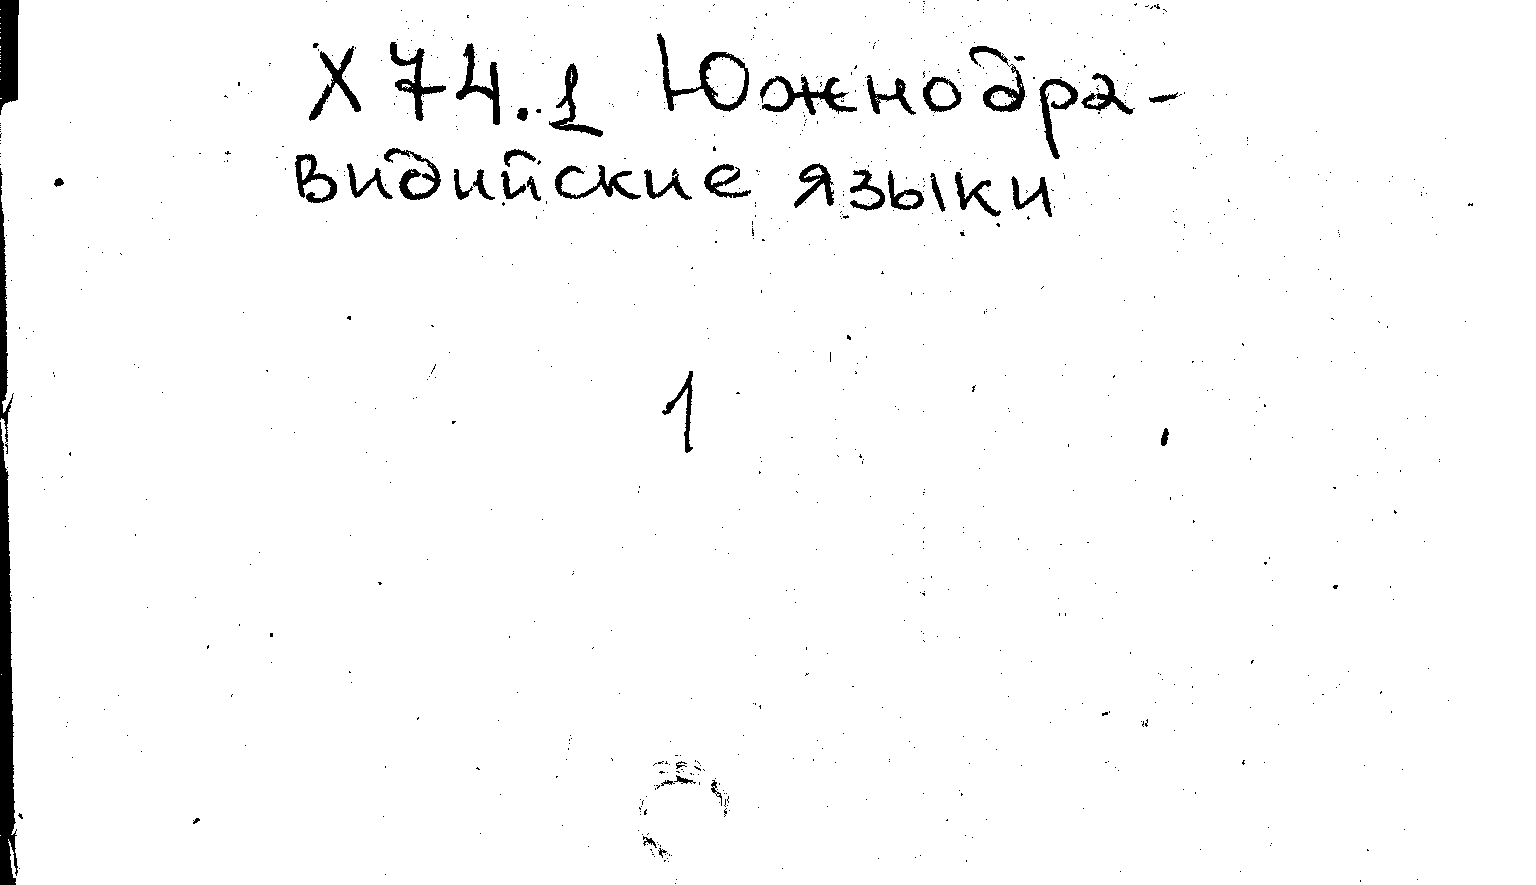 Х 74.1 Южнодра-
видийские языки
1